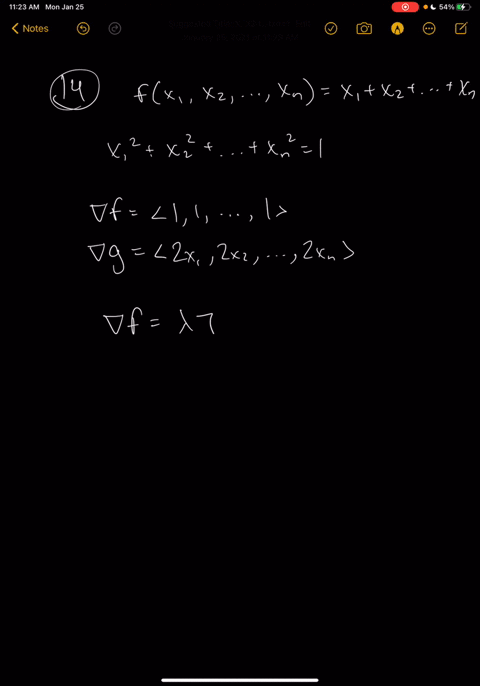 11:23 AM Mon Jan 25
54%
Notes
14 f(x₁, x₂, ..., xₙ) = x₁ + x₂ + ... + xₙ
x₁² + x₂² + ... + xₙ² = 1
∇f = <1, 1, ..., 1>
∇g = <2x₁, 2x₂, ..., 2xₙ>
∇f = λ